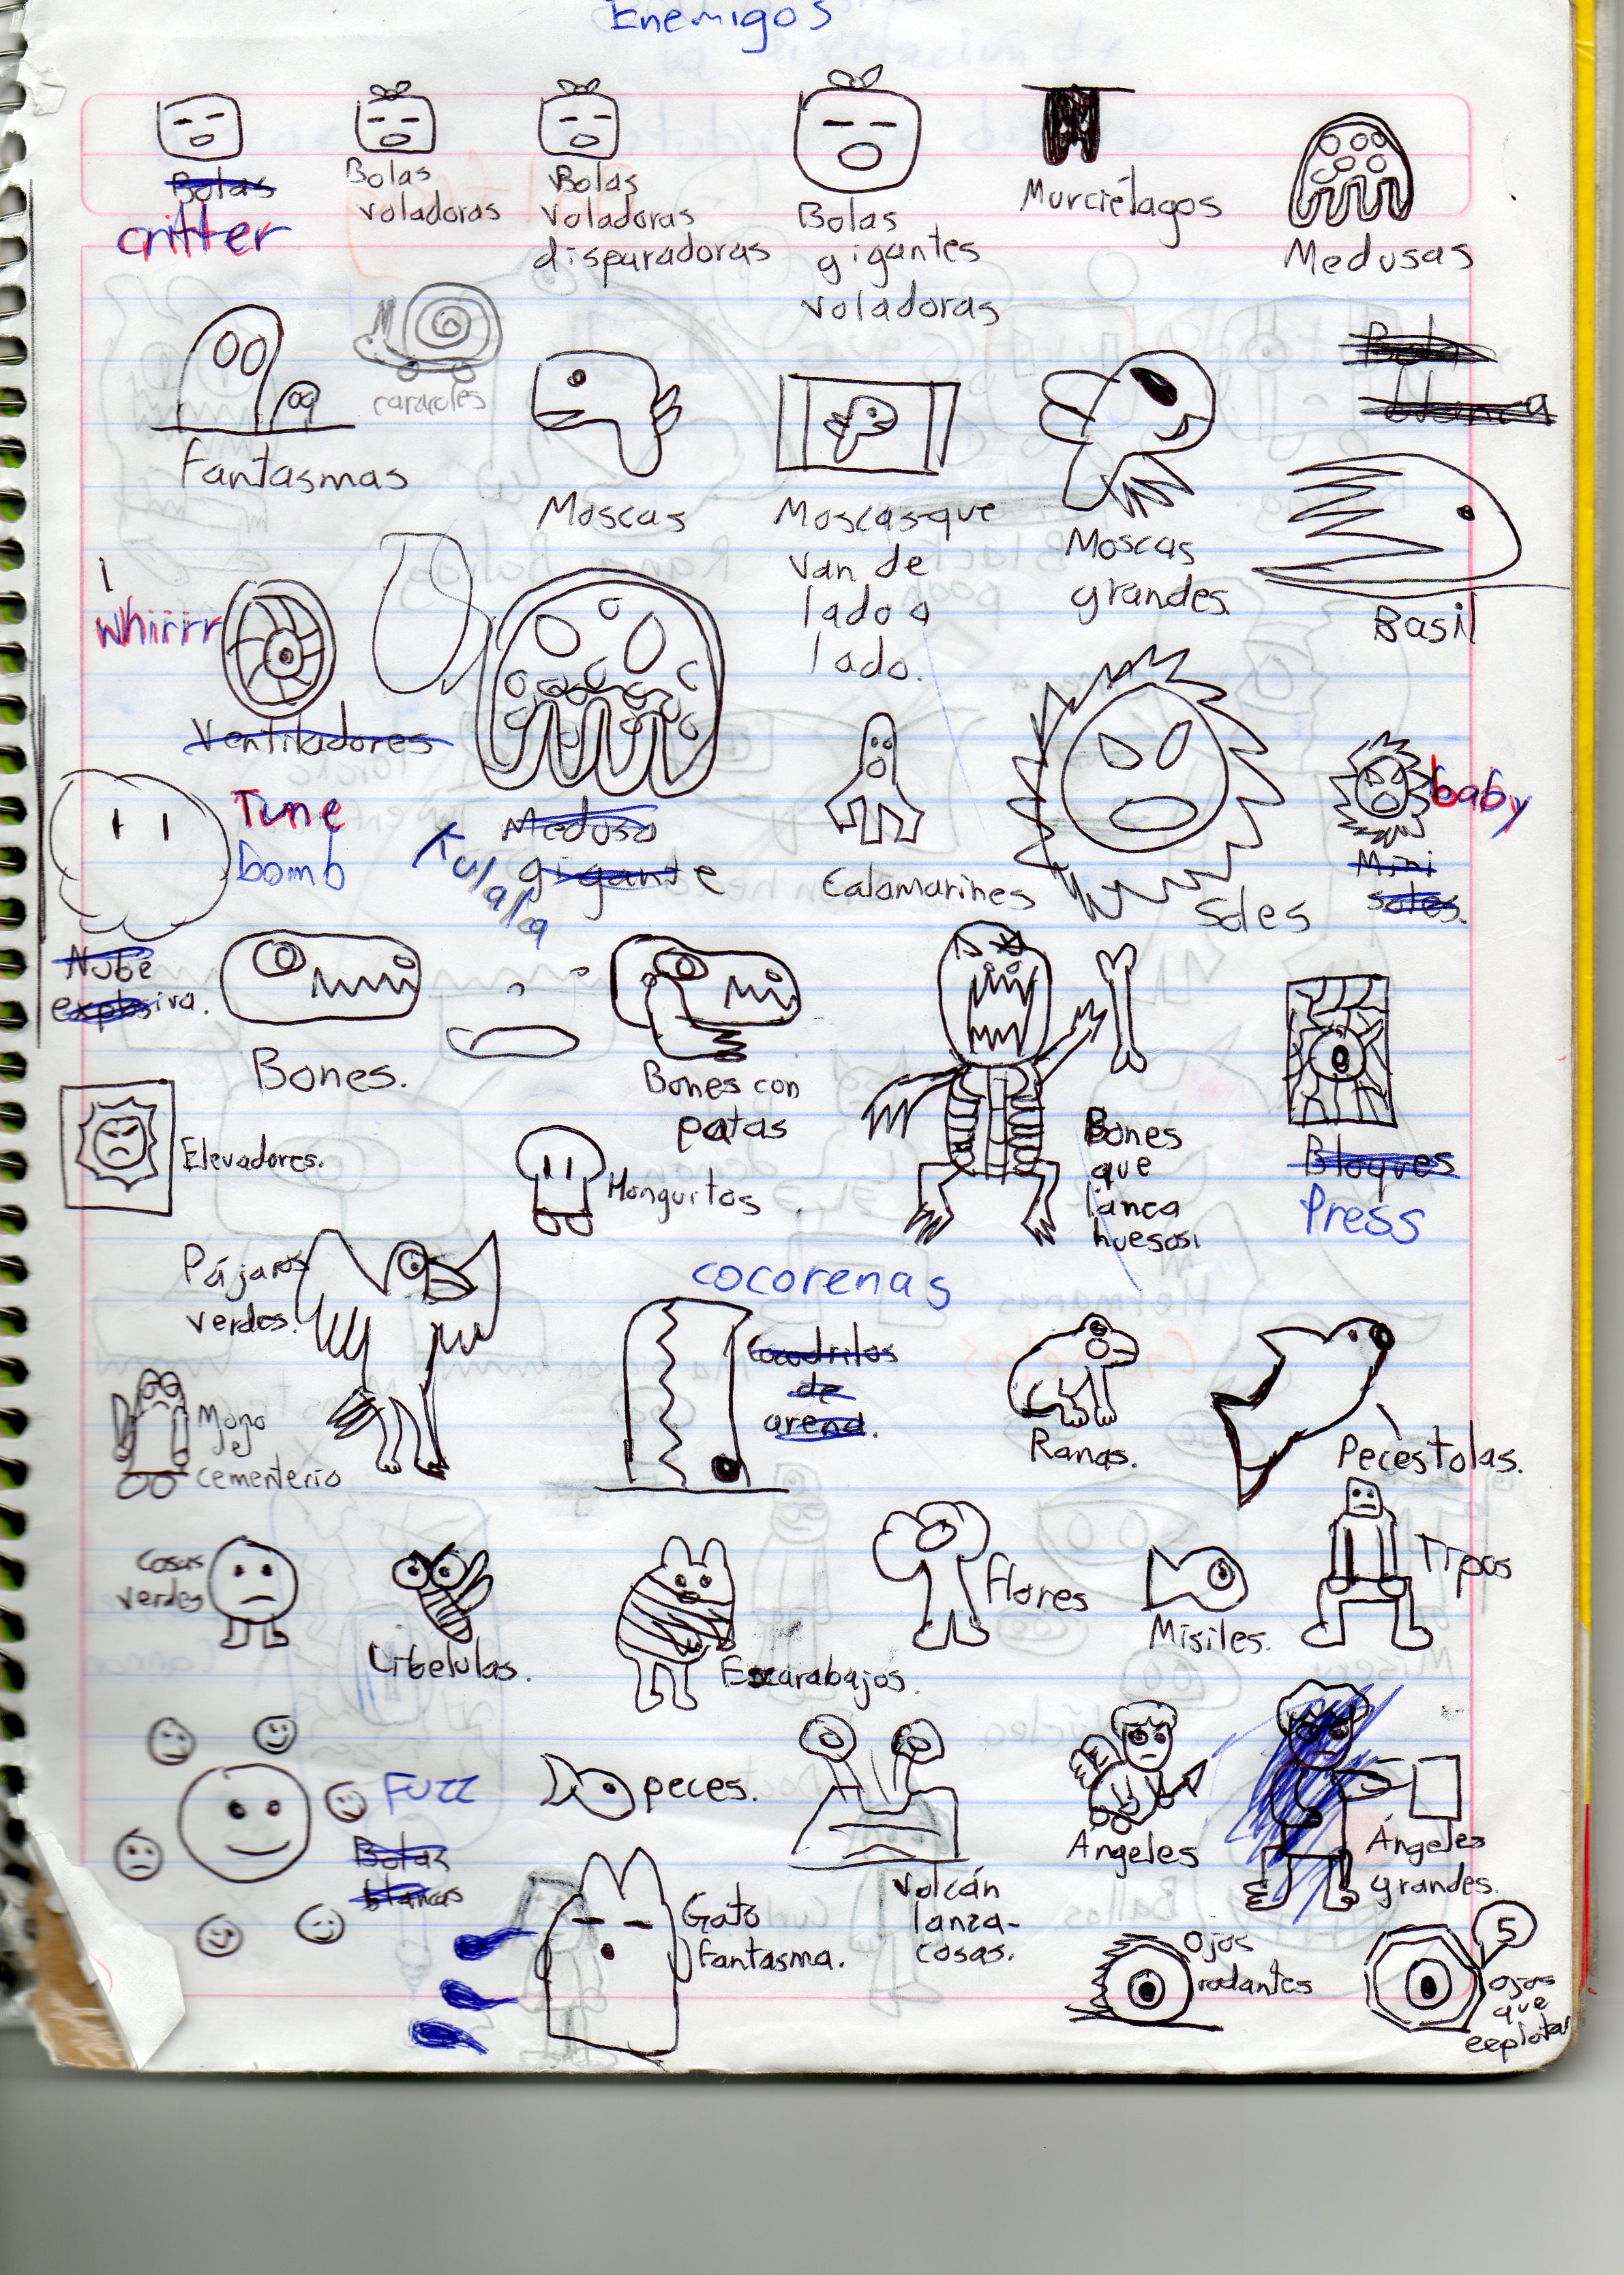 Enemigos
Bolas
critter
Bolas
voladoras
Bolas
voladoras
disparadoras
Bolas
gigantes
voladoras
Murciélagos
Medusas
Fantasmas
caracoles
Moscas
Moscas que
van de
lado a
lado.
Moscas
grandes.
Bola
blanca
Basil
Whirrr
Ventiladores
Medusa
gigante
Kulala
Calamarines
Soles
baby
Mini
soles.
Tune
bomb
Nube
explosiva.
Bones.
Bones con
patas
Bones
que
lanca
huesos.
Bloques
Press
Elevadores.
Honguitos
Pájaros
verdes.
cocorenas
Cocodrilos
de
arena.
Ranas.
Pecestolas.
Mono
del
cementerio
Cosas
verdes
Libelulas.
Escarabajos.
Flores
Misiles.
Tipos
Fuzz
Bolas
blancas
peces.
Volcán
lanza-
cosas.
Angeles
Ángeles
grandes.
Gato
fantasma.
Ojos
rodantes
5
ojos
que
explotan